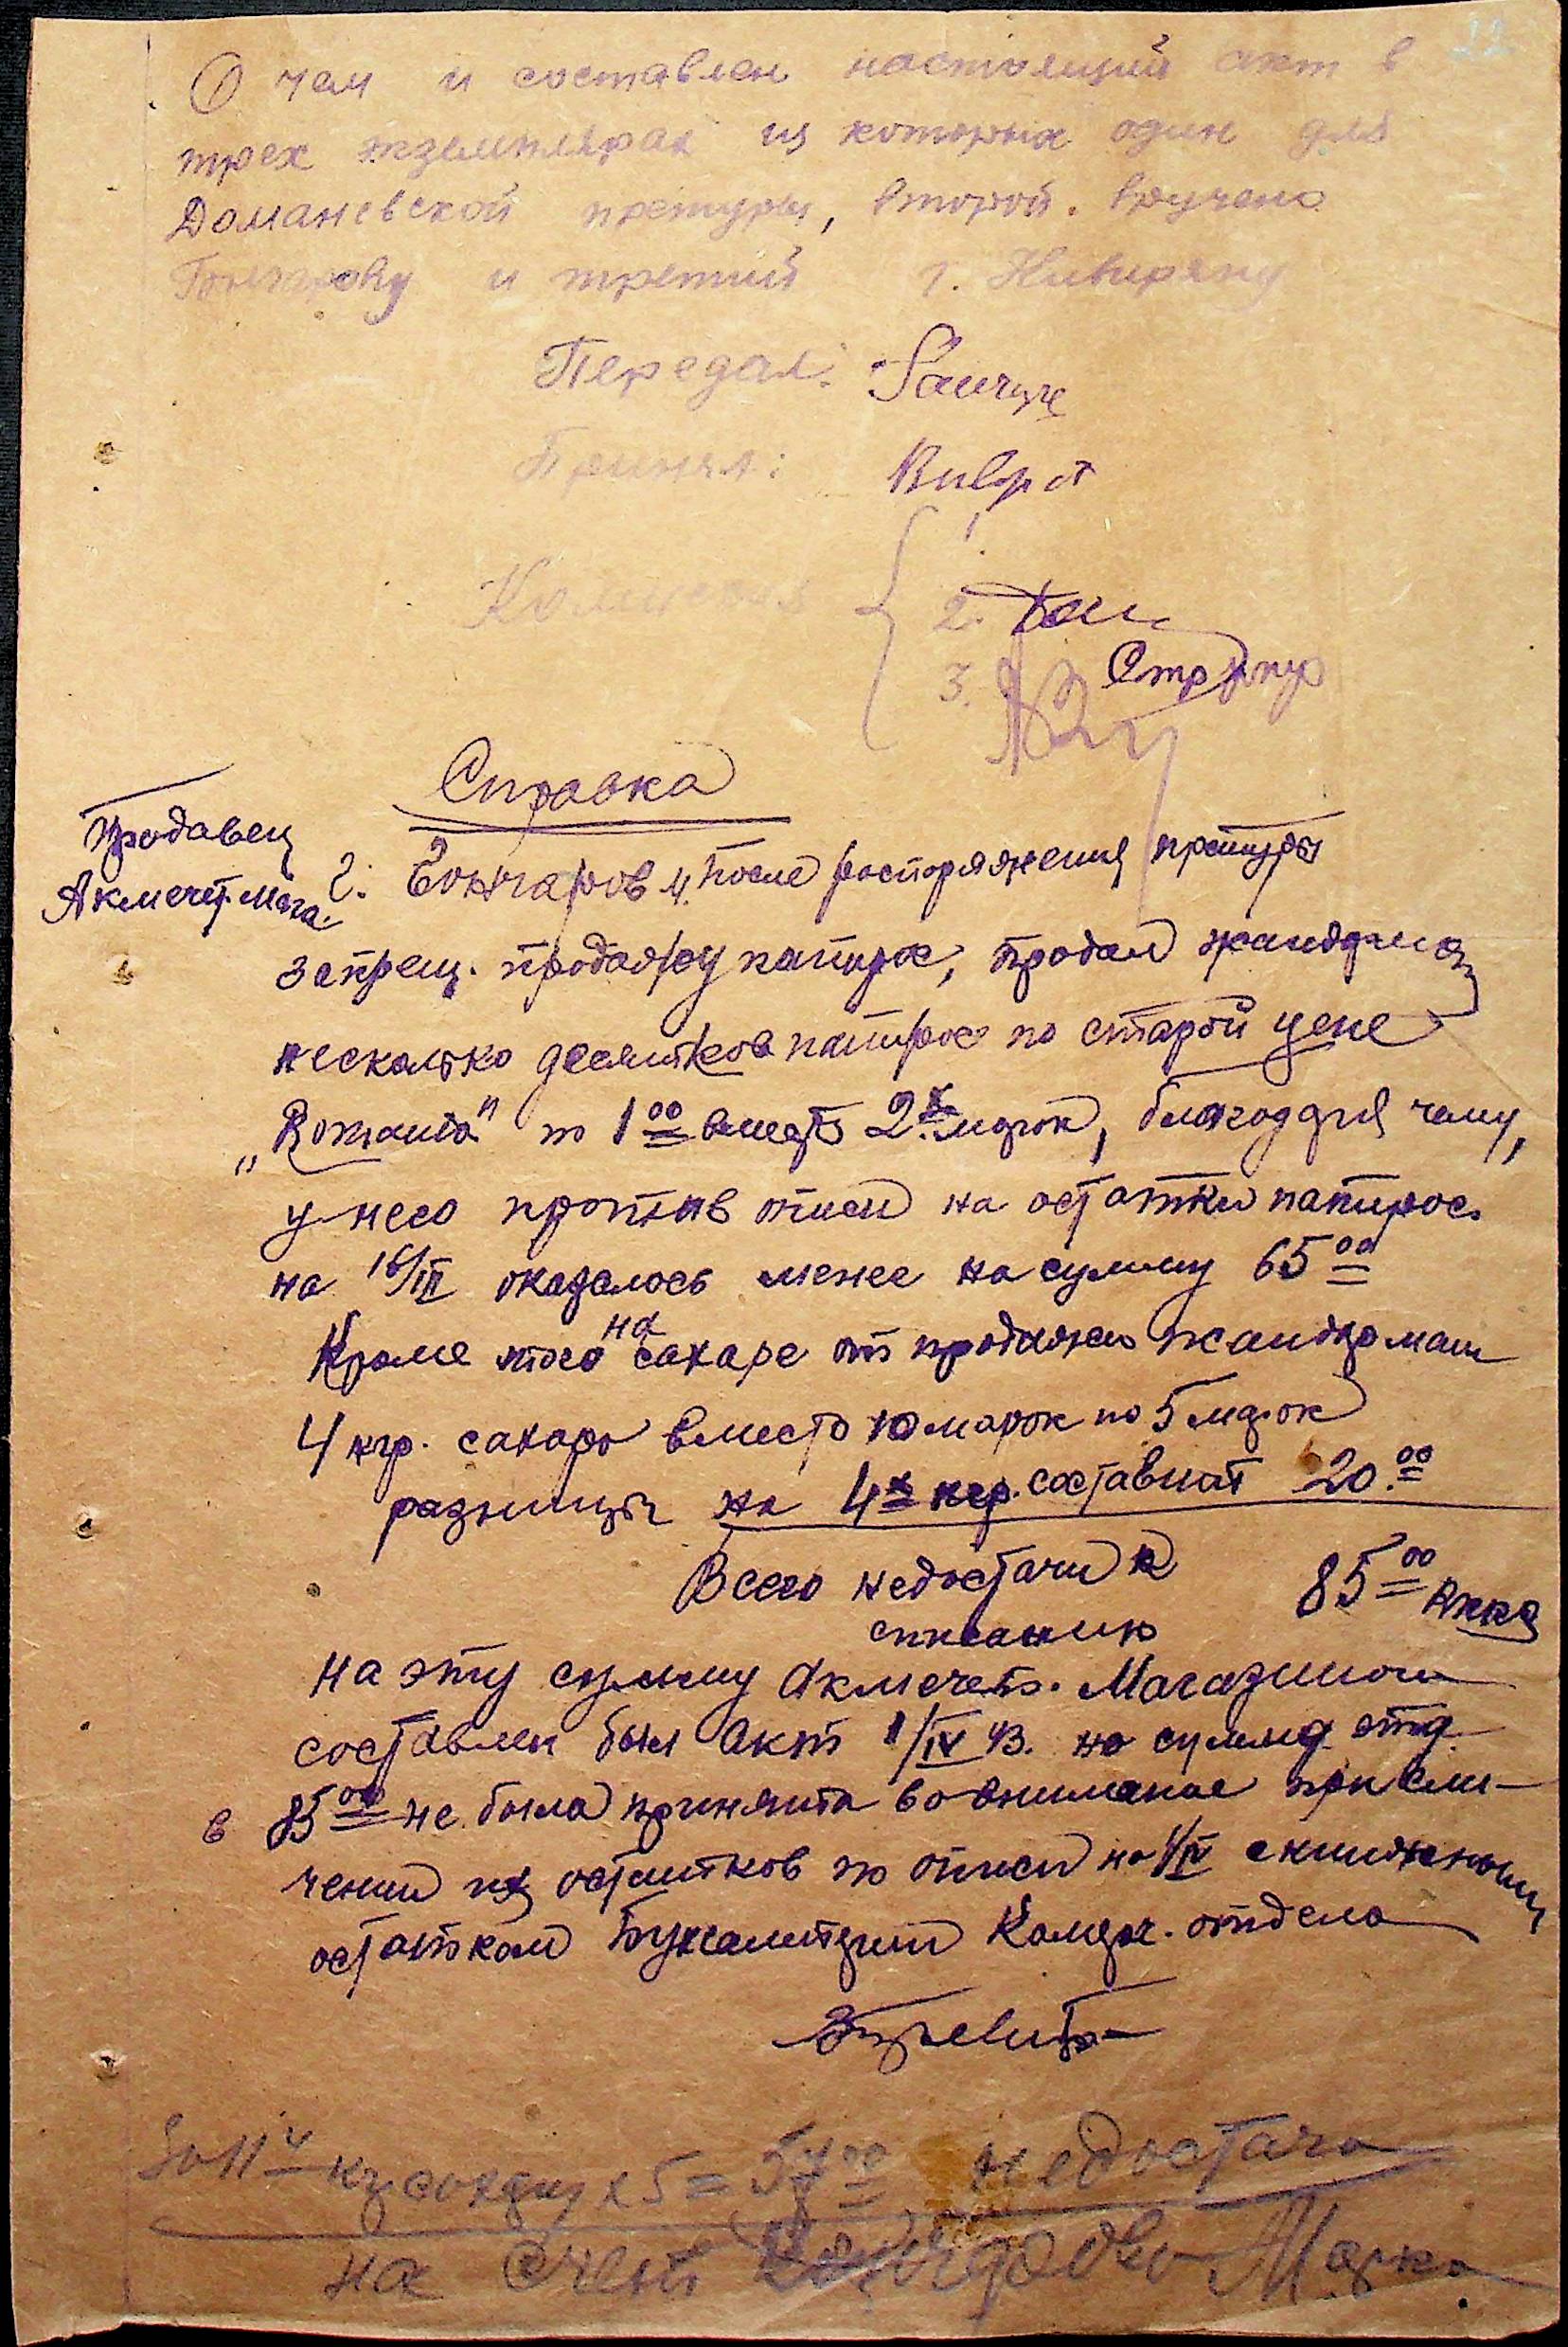 22
О чем и составлен настоящий акт в
трех экземплярах из которых один для
Доманевской претуры, второй. вручено
Гончарову и третий г.
Передал:
Принял:
Комиссия
1.
2.
3.
Справка
Продавец
Акмечет. Мага.
г. Гончаров М. после распоряжения претуры
запрещ. продажу папирос, продал жандарма
несколько десятков папирос по старой цене
по 1 00 вместо 2 х марок, благодаря чему,
у него против описи на остатки папирос
на 16/IV оказалось менее на сумму 65 00
Кроме того на сахаре от продажи жандармам
4 кгр. сахара вместо 10 марок по 5 марок
разницы на 4 х кгр. составит 20. 00
Всего недостачи к 85 00
списанию
на эту сумму Акмечетс. Магазином
составлен был акт 1/IV 43. но сумма эта
в 85 00 не была принята во внимание при сли-
чении остатков по описи на 1/IV с книжным
остатком Бухгалтерии Комерч. отдела
х 5 = недостача
на счет Гончарова Марка